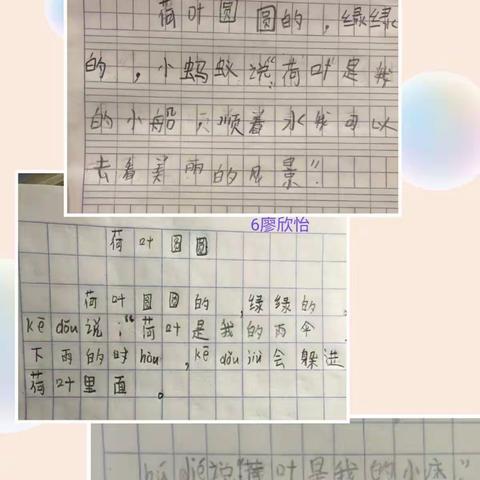 荷叶圆圆的，绿绿
的，小蚂蚁说“荷叶是我
的小船，顺着水我可以
去看美丽的风景”
6廖欣怡
荷叶圆圆
荷叶圆圆的，绿绿的。
kē dǒu说：“荷叶是我的雨伞
下雨的时hòu，kē dǒu jiù会躲进
荷叶里面。
hú dié说“荷叶是我的小床。”